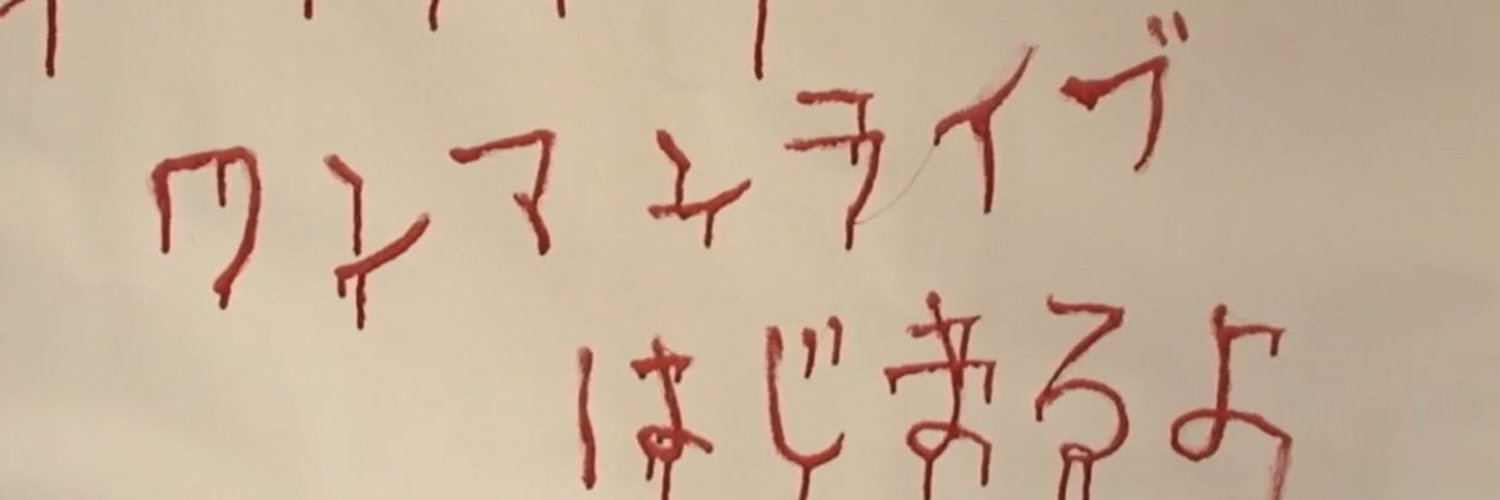 ワンマンライブ
はじまるよ